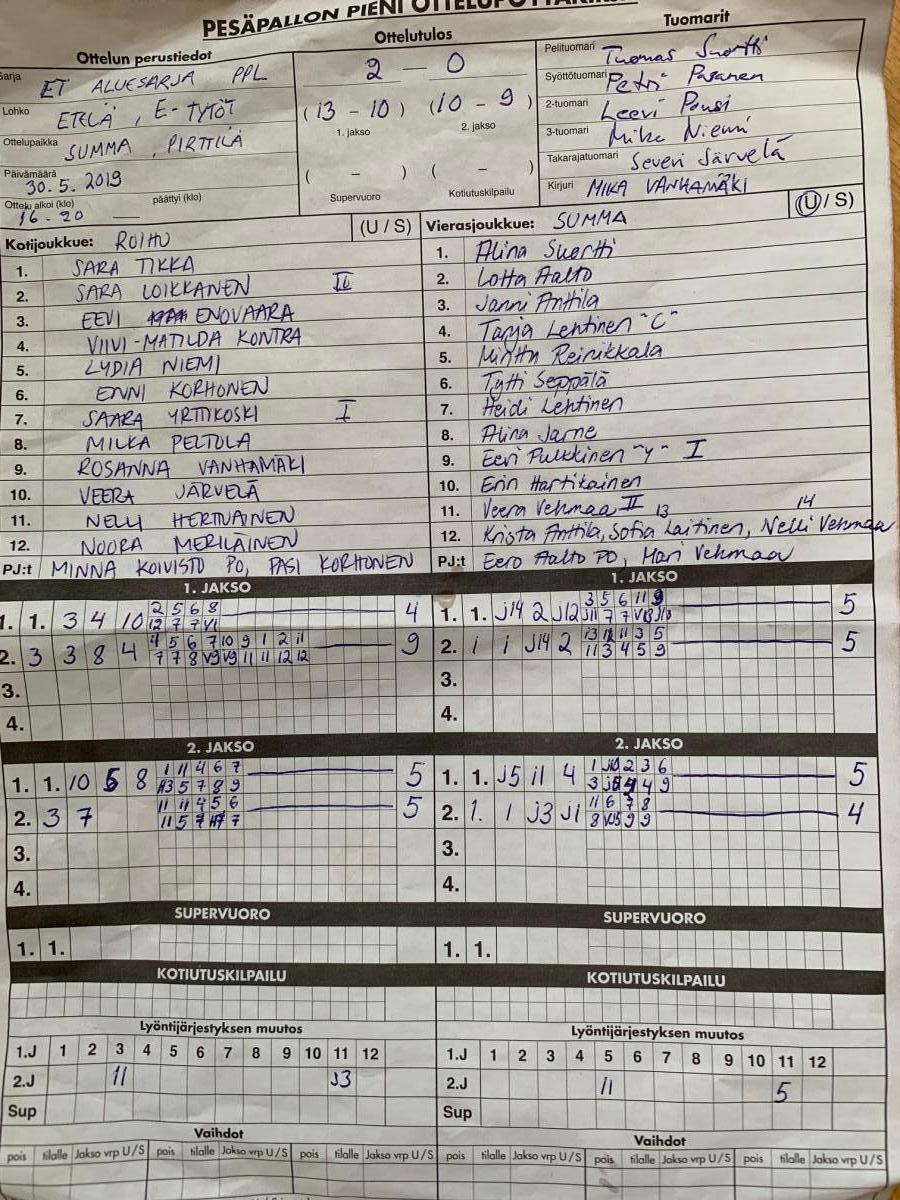 PESÄPALLON PIENI
Ottelun perustiedot
Ottelutulos
Tuomarit
Sarja ET ALUESARJA PPL
Lohko ETELÄ, E-TYTÖT
Ottelupaikka SUMMA, PIRTTILÄ
Päivämäärä 30.5.2019
Ottelu alkoi (klo) 16-20 — päättyi (klo)
2 — 0
(13 - 10) (10 - 9)
1. jakso 2. jakso
( - ) ( - )
Supervuoro Kotiutuskilpailu
Pelituomari Tuomas Suortti
Syöttötuomari Petri Pasanen
2-tuomari Leevi Pousi
3-tuomari Mika Niemi
Takarajatuomari Severi Järvelä
Kirjuri MIKA VANHAMÄKI
Kotijoukkue: ROIHU (U / S)
1. SARA TIKKA
2. SARA LOIKKANEN II
3. EEVI ENOVAARA
4. VIIVI-MATILDA KONTRA
5. LYDIA NIEMI
6. ENNI KORHONEN
7. SAARA YRTTIKOSKI I
8. MILKA PELTOLA
9. ROSANNA VANHAMÄKI
10. VEERA JÄRVELÄ
11. NELLI HERTUAINEN
12. NOORA MERILÄINEN
PJ:t MINNA KOIVISTO PO, PASI KORHONEN
Vierasjoukkue: SUMMA (U / S)
1. Alina Suortti
2. Lotta Aalto
3. Janni Anttila
4. Tanja Lehtinen "C"
5. Minttu Reinikkala
6. Tytti Seppälä
7. Heidi Lehtinen
8. Alina Jarne
9. Eevi Pulkkinen "Y" I
10. Erin Hartikainen
11. Veera Vehmaa II 13 14
12. Krista Anttila, Sofia Laitinen, Nelli Vehmaa
PJ:t Eero Aalto PO, Mari Vehmaa
1. JAKSO
2 5 6 8
1. 1. 3 4 10 4
12 7 7 V1
4 5 6 7 10 9 1 2 11
2. 3 3 8 4 9
7 7 8 V9 V9 11 11 12 12
3.
4.
1. JAKSO
3 5 6 11 9
1. 1. J14 2 J12 5
J11 7 7 V13 J10
2. 1 1 J14 2 5
11 3 4 5 9
3.
4.
2. JAKSO
1 11 4 6 7
1. 1. 10 5 8 5
5 7 8 9
11 11 4 5 6
2. 3 7 5
11 5 7 7
3.
4.
2. JAKSO
1 J10 2 3 6
1. 1. J5 11 4 5
4 9
11 6 7 8
2. 1. 1 J3 J1 4
8 VJ5 9 9
3.
4.
SUPERVUORO
1. 1.
SUPERVUORO
1. 1.
KOTIUTUSKILPAILU
KOTIUTUSKILPAILU
Lyöntijärjestyksen muutos
1.J 1 2 3 4 5 6 7 8 9 10 11 12
2.J 11 J3
Sup
Lyöntijärjestyksen muutos
1.J 1 2 3 4 5 6 7 8 9 10 11 12
2.J 11 5
Sup
Vaihdot
pois tilalle Jakso vrp U / S pois tilalle Jakso vrp U / S pois tilalle Jakso vrp U / S
Vaihdot
pois tilalle Jakso vrp U / S pois tilalle Jakso vrp U / S pois tilalle Jakso vrp U / S